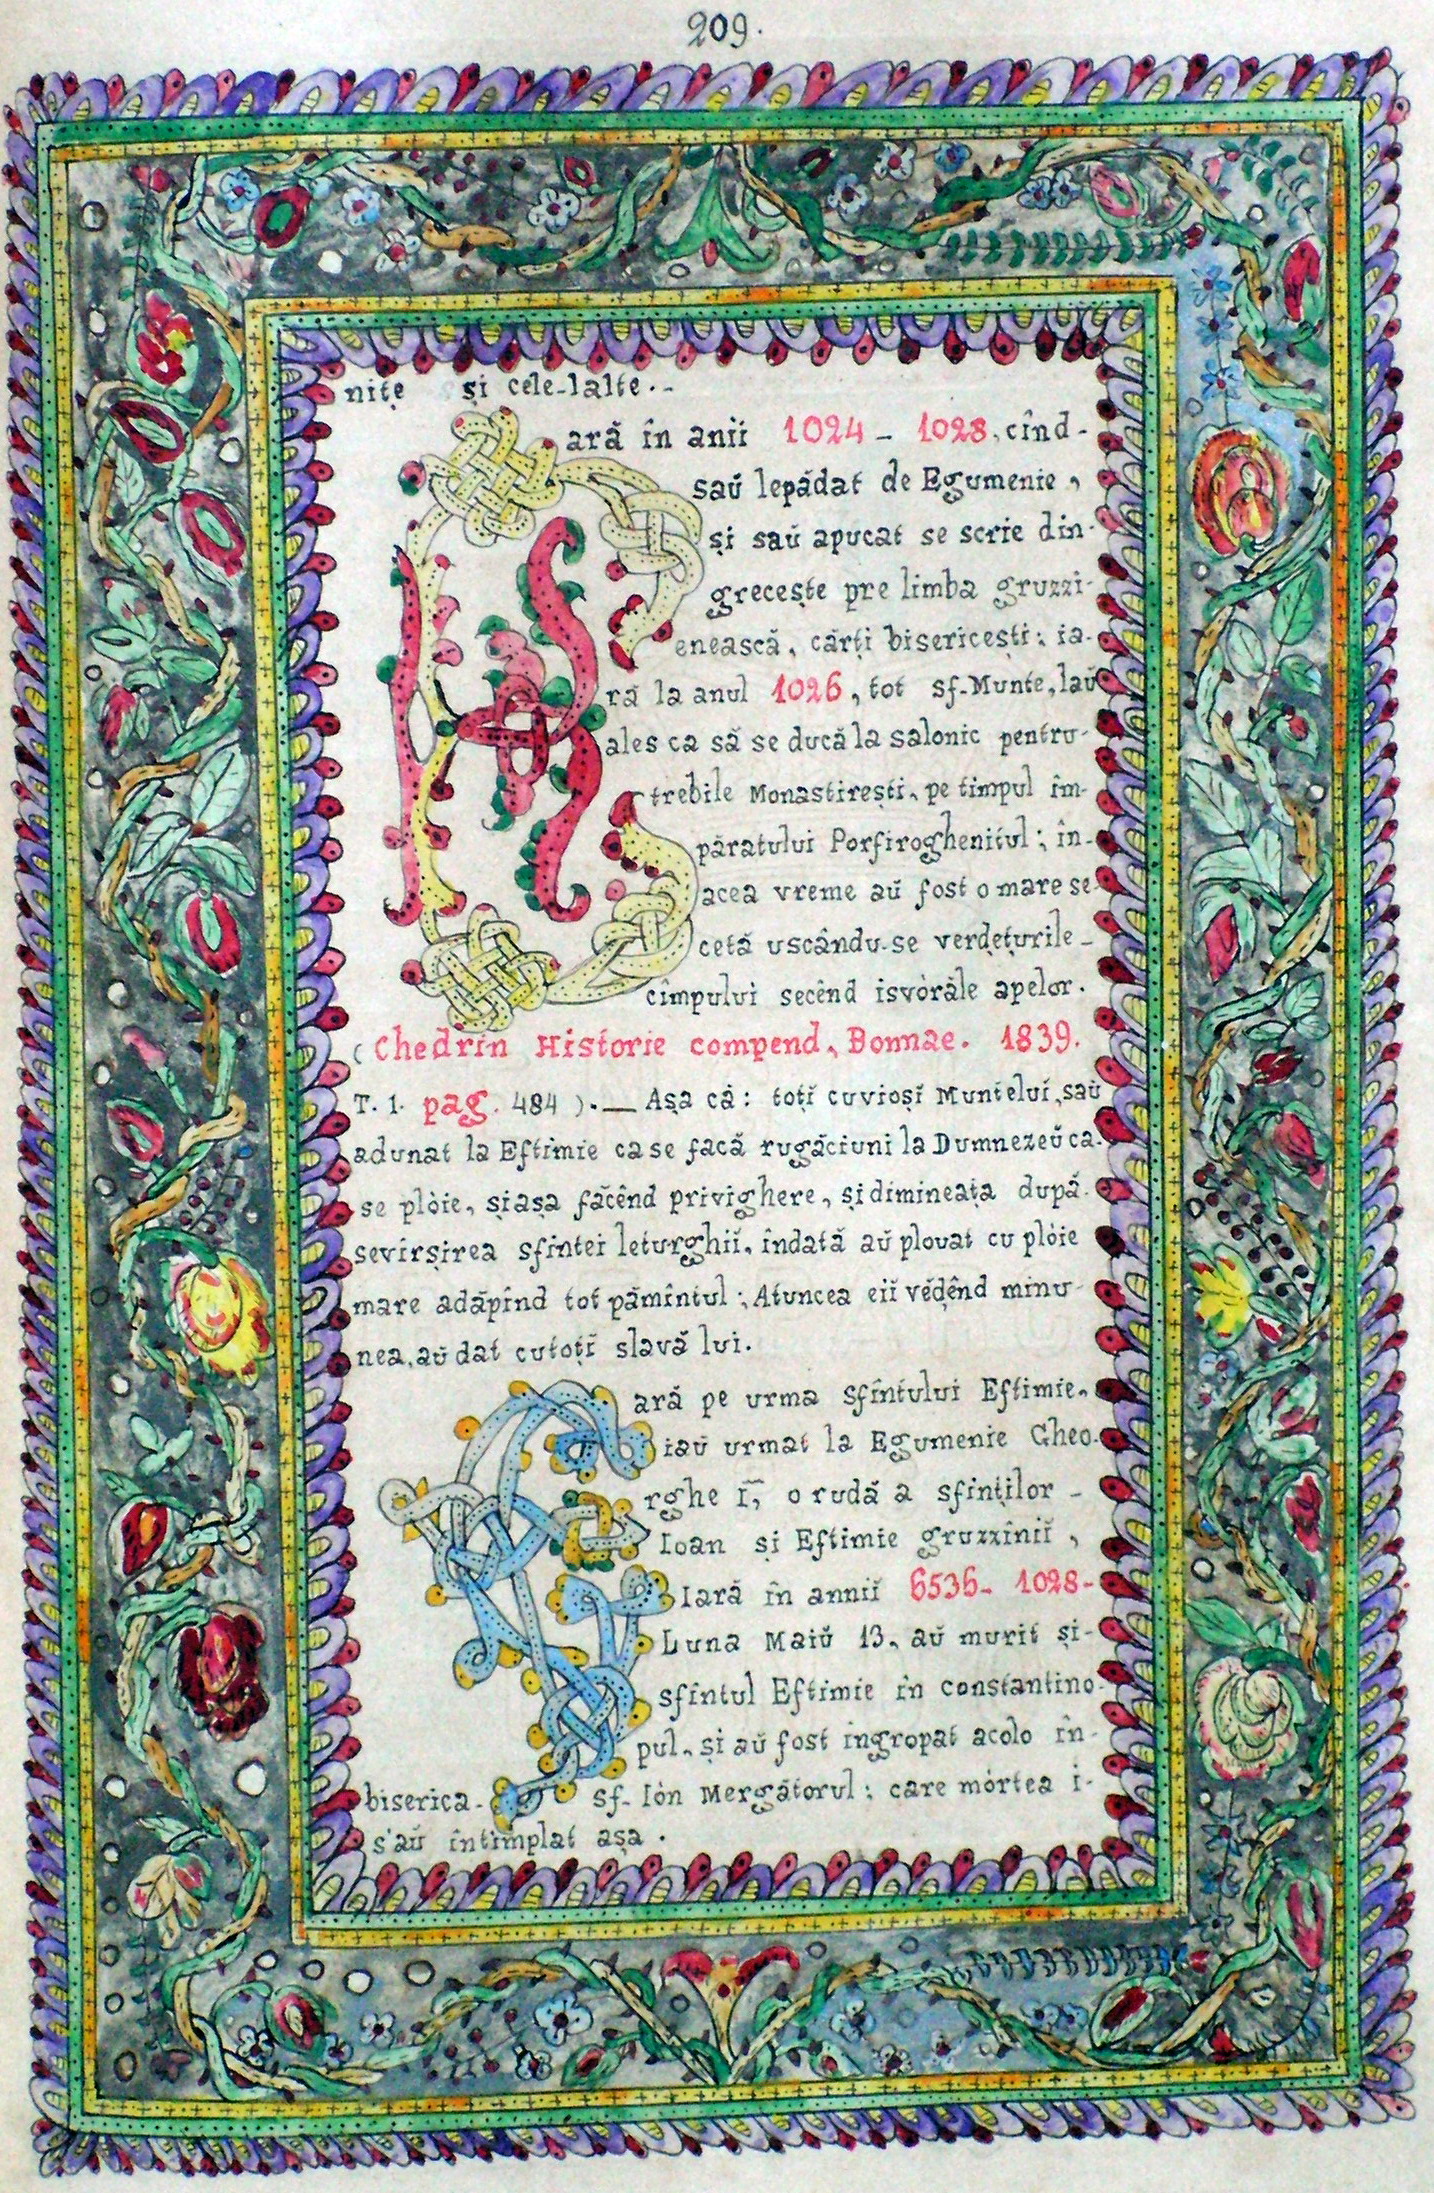 209.
nițe și cele-lalte.-
ară în anii 1024 - 1028, cînd-
saŭ lepădat de Egumenie,
și saŭ apucat se scrie din-
grecește pre limba gruzzi-
enească, cărți bisericești; ia-
ră la anul 1026, tot sf-Munte, laŭ
ales ca să se ducă la salonic pentru-
trebile Monastirești, pe timpul îm-
păratului Porfiroghenitul; în-
acea vreme aŭ fost o mare se-
cetă uscându-se verdețurile-
cîmpului secênd isvòrăle apelor.
(Chedrin Historie compend, Bonnae. 1839.
T. 1. pag. 484).— Așa că: toți cuvioși Muntelui, saŭ
adunat la Eftimie ca se facă rugăciuni la Dumnezeŭ ca-
se plòie, șiașa făcênd privighere, și dimineața după-
sevirșirea sfintei leturghiĭ, îndată aŭ plouat cu plòie
mare adăpînd tot pămîntul; Atuncea eiĭ vĕdênd minu-
nea, aŭ dat cutoțĭ slavă lui.
ară pe urma sfîntului Eftimie,
iaŭ urmat la Egumenie Gheo-
rghe I, o rudă a sfinților-
Ioan și Eftimie gruzzîniĭ,
Iară în anniĭ 6536- 1028-
Luna Maiŭ 13, aŭ murit și-
sfîntul Eftimie în constantino-
pul, și aŭ fost ingropat acolo în-
biserica- sf- Iòn Mergătorul; care mòrtea i-
s'aŭ întîmplat așa.